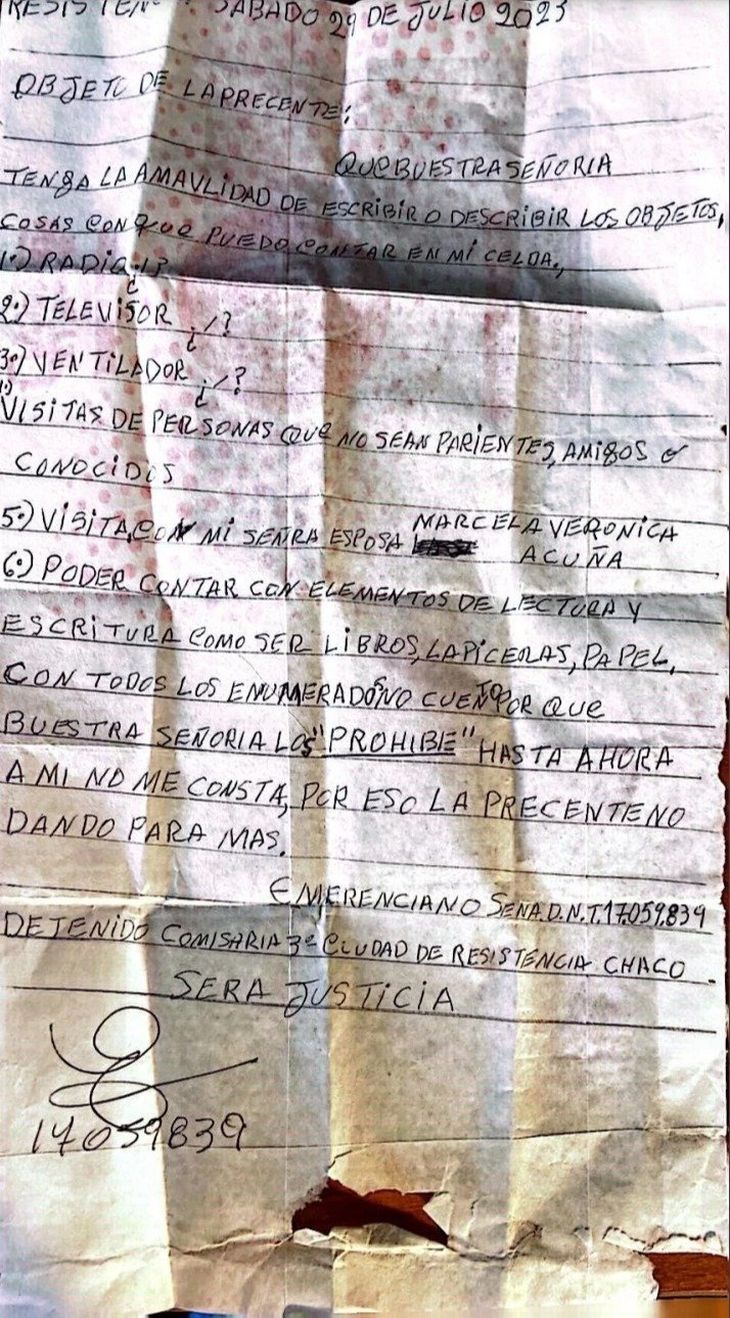 RESISTEN SABADO 29 DE JULIO 2023
OBJETO DE LA PRECENTE:
QUE BUESTRA SEÑORIA
TENGA LA AMAVLIDAD DE ESCRIBIR O DESCRIBIR LOS OBJETOS,
COSAS CON QUE PUEDO CONTAR EN MI CELDA.,
1º) RADIO ¿!?
2º) TELEVISOR ¿/?
3º) VENTILADOR ¿/?
VISITAS DE PERSONAS QUE NO SEAN PARIENTES, AMIGOS O
CONOCIDOS
5º) VISITA, CON MI SEÑRA ESPOSA MARCELA VERONICA
ACUÑA
6º) PODER CONTAR CON ELEMENTOS DE LECTURA Y
ESCRITURA COMO SER LIBROS, LAPICERAS, PAPEL,
CON TODOS LOS ENUMERADOS NO CUENTO POR QUE
BUESTRA SEÑORIA LOS "PROHIBE" HASTA AHORA
A MI NO ME CONSTA, POR ESO LA PRECENTE NO
DANDO PARA MAS.
EMERENCIANO SENA. D.N.I. 17.059.839
DETENIDO COMISARIA 3º CIUDAD DE RESISTENCIA CHACO.
SERA JUSTICIA
17059839